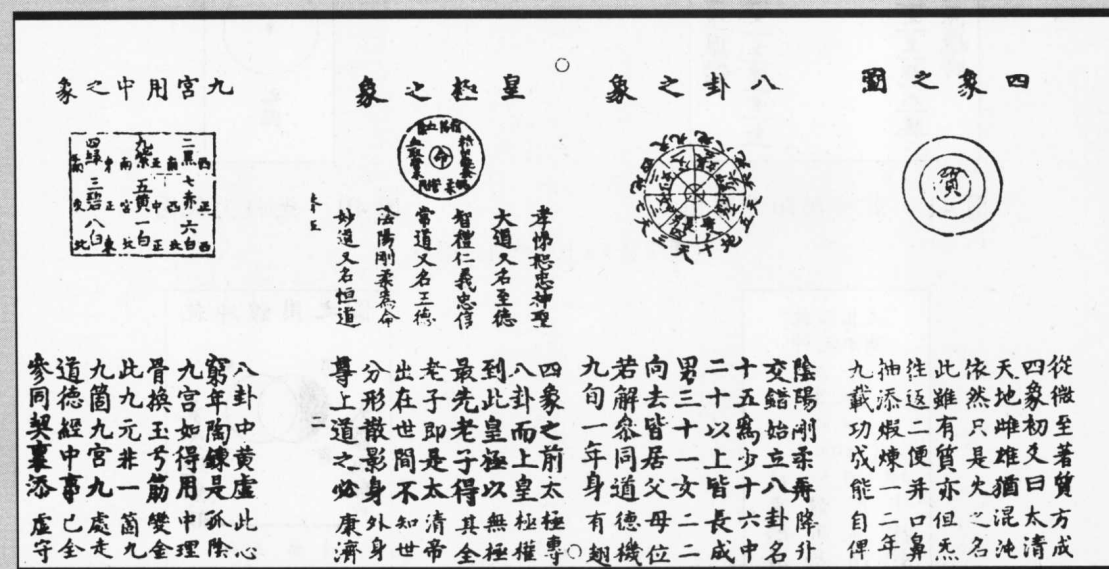 四象之圖
質
從微至著質方成
四象初爻曰太清
天地雌雄猶混沌
依然只是火之名
此雖有質亦但炁
往返二便并口鼻
抽添煅煉一二年
九載功成能自俾
八卦之象
陰陽剛柔再降升
交錯始立八卦名
十五為少十六中
二十以上皆長成
男三十一女二二
向去皆居父母位
若解參同道德機
九旬一年身有翅
皇極之象
命
孝悌恕忠神聖
大道又名至德
智禮仁義忠信
常道又名三德
陰陽剛柔為命
妙道又名恒道
四象之前太極專
八卦而上皇極權
到此皇極以無極
最先老子得其全
老子即是太清帝
出在世間不知世
分形散影身外身
尊上道之必康濟
二
九宮用中之象
二黑
九紫
四綠
七赤
五黃
三碧
六白
一白
八白
八卦中黃虛此心
窮年陶鍊是孤陰
九宮如得用中理
骨換玉兮筋變金
此九元非一箇九
九箇九宮九處走
道德經中事已全
參同契裏添虛守